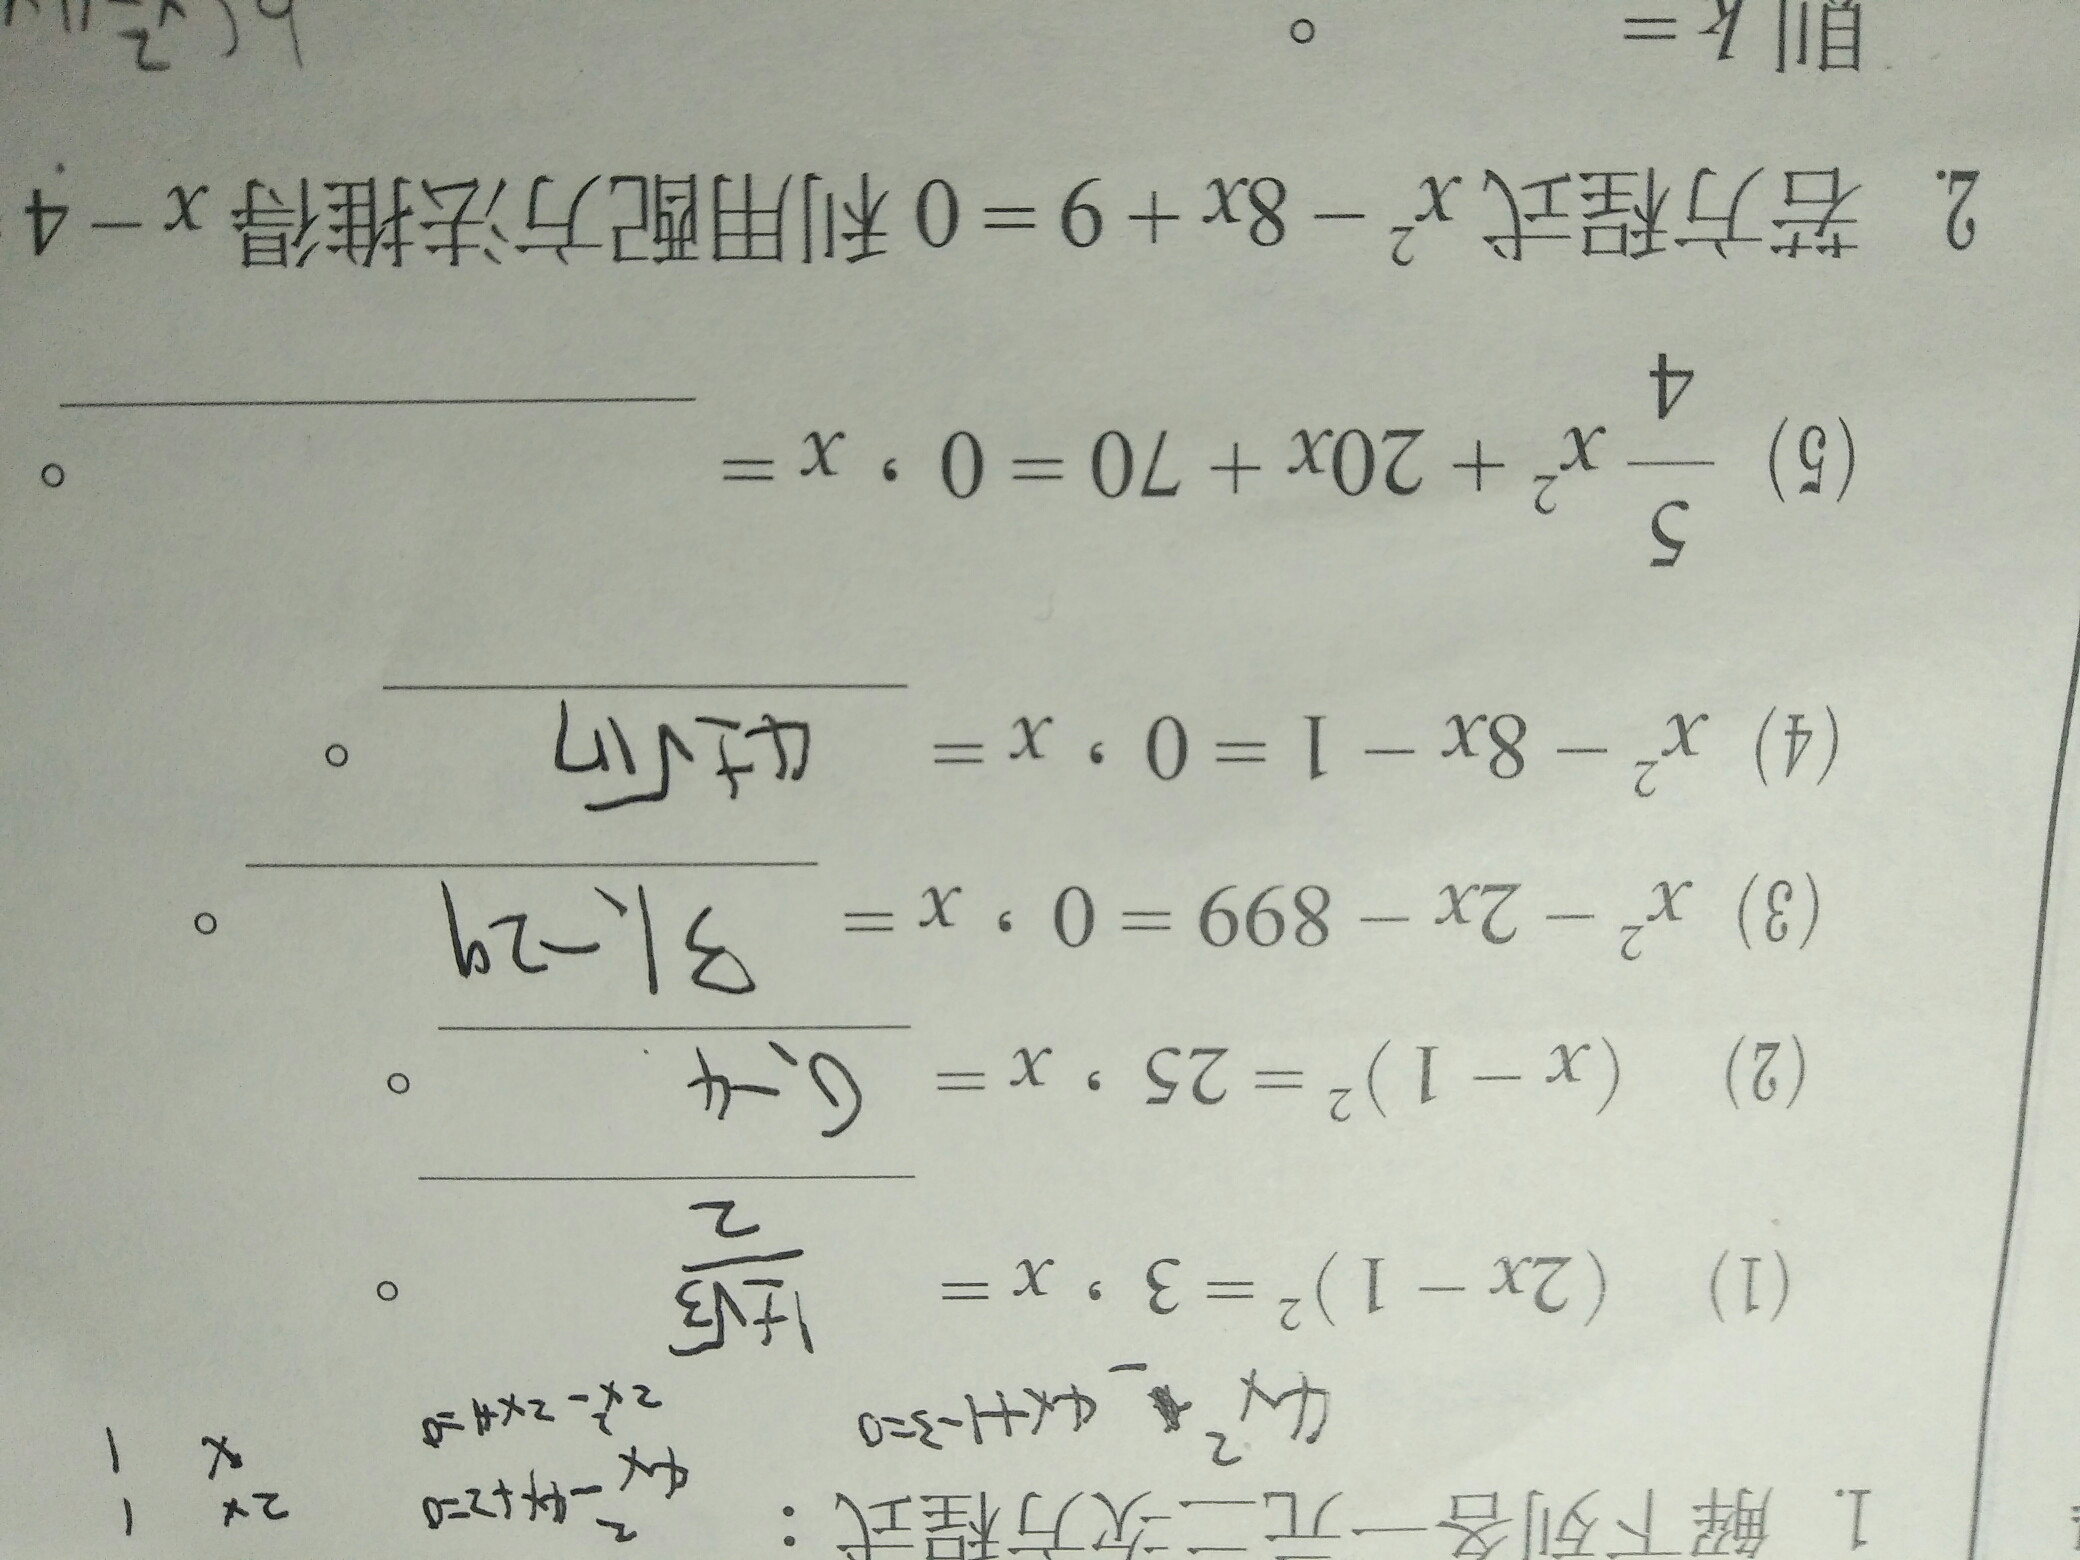 1. 解下列各一元二次方程式：
4x² - 4x+1-3=0
4x² - 4x+2=0
2x² - 2x+1=0
2x 1
x 1
(1) (2x − 1)² = 3，x = 1±√3/2 。
(2) (x − 1)² = 25，x = 6,-4 。
(3) x² − 2x − 899 = 0，x = 31,-29 。
(4) x² − 8x − 1 = 0，x = 4±√17 。
(5) 5/4 x² + 20x + 70 = 0，x = 。
2. 若方程式 x² − 8x + 9 = 0 利用配方法推得 x − 4
則 k = 。